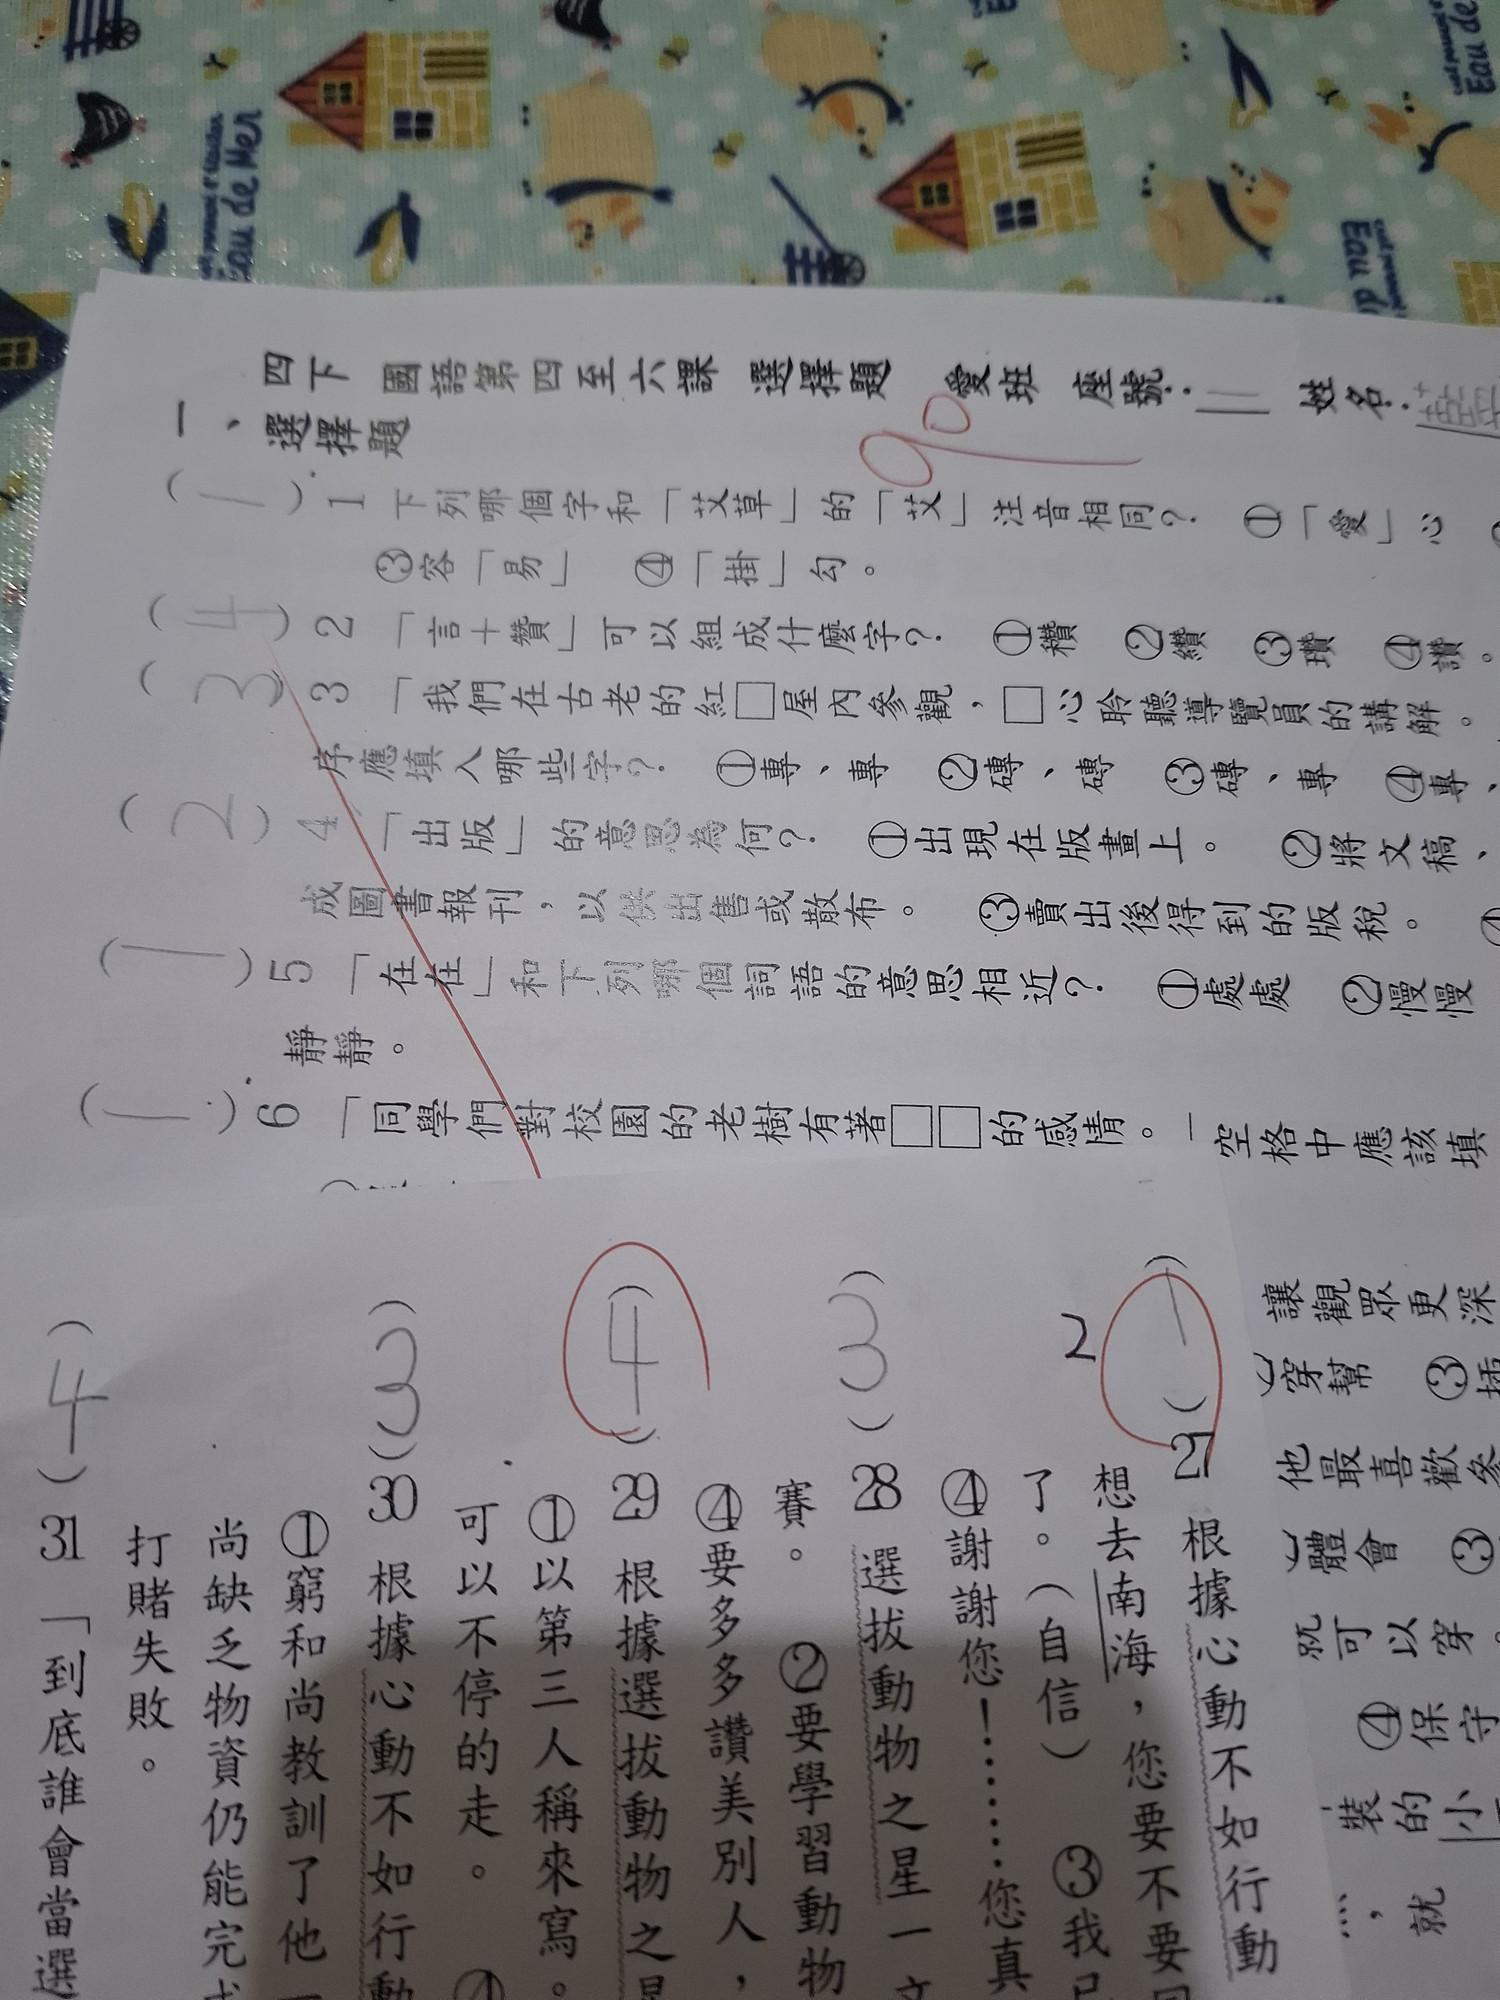 四下 國語第四至六課 選擇題 愛班 座號：11 姓名：
90
一、選擇題
(1) 1 下列哪個字和「艾草」的「艾」注音相同？ ①「愛」心
③容「易」 ④「掛」勾。
(4) 2 「言＋贊」可以組成什麼字？ ①穳 ②纘 ③瓚 ④讚。
(3) 3 「我們在古老的紅□屋內參觀，□心聆聽導覽員的講解。
序應填入哪些字？ ①專、專 ②磚、磚 ③磚、專 ④專、
(2) 4 「出版」的意思為何？ ①出現在版畫上。 ②將文稿、
成圖書報刊，以供出售或散布。 ③賣出後得到的版稅。
(1) 5 「在在」和下列哪個詞語的意思相近？ ①處處 ②慢慢
靜靜。
(1) 6 「同學們對校園的老樹有著□□的感情。」空格中應該填
讓觀眾更深
穿幫 ③
他最喜歡參
體會 ③
就可以穿。
④保守
裝的小
，就
2
(1) 27 根據心動不如行動
想去南海，您要不要
了。（自信） ③我
④謝謝您！……您真
(3) 28 選拔動物之星一文
賽。 ②要學習動物
④要多多讚美別人，
(4) 29 根據選拔動物之星
①以第三人稱來寫。
可以不停的走。 ④
(3) 30 根據心動不如行動
①窮和尚教訓了他一
尚缺乏物資仍能完成
打賭失敗。
(4) 31 「到底誰會當選
Eau de Mer
Eau de Mer
Eau de